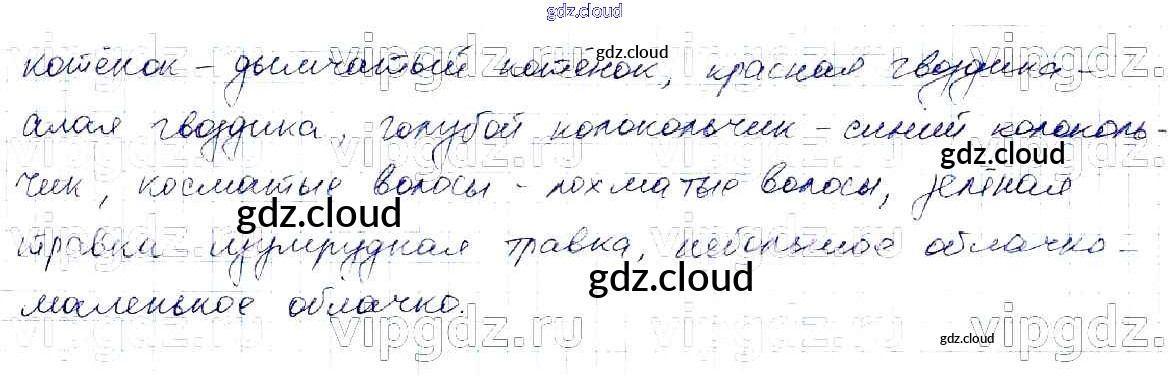 gdz.cloud
котёнок – дымчатый котёнок, красная гвоздика –
алая гвоздика, голубой колокольчик – синий колоколь-
чик, косматые волосы – лохматые волосы, зелёная
травка изумрудная травка, небольшое облачко –
маленькое облачко.
gdz.cloud
gdz.cloud
gdz.cloud
gdz.cloud
gdz.cloud
vipgdz.ru